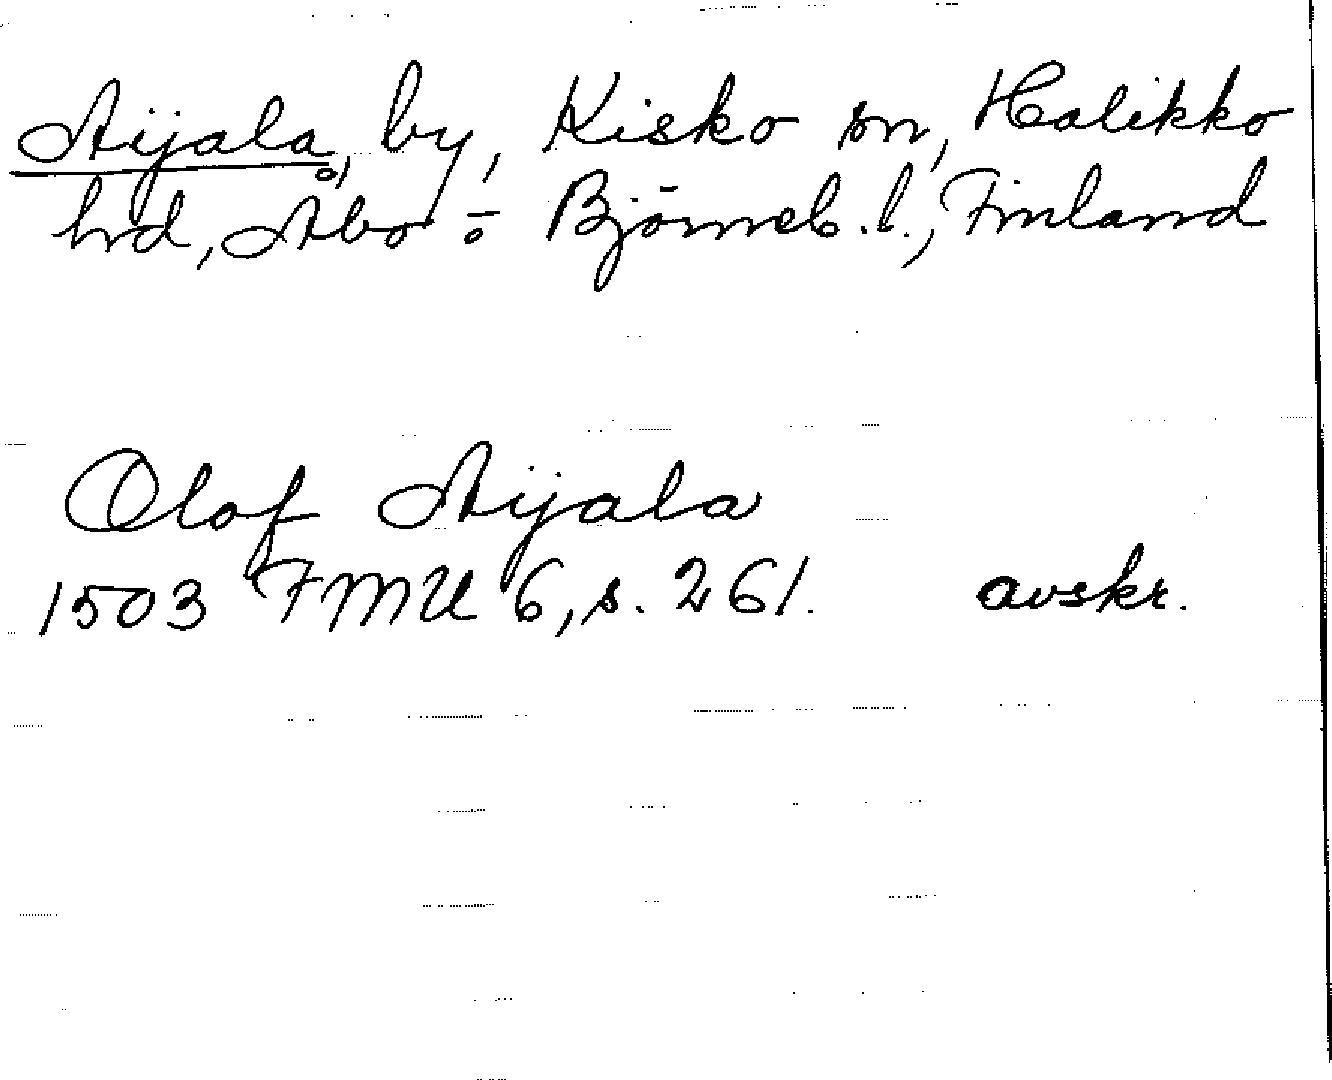 Aijala, by, Kisko sn, Halikko
hrd, Åbo- Björneb. l., Finland
Olof Aijala
1503 FMU 6, s. 261. avskr.